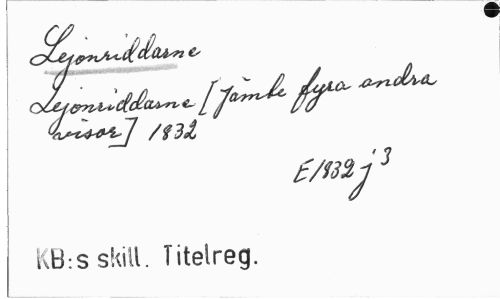 Lejonriddarne
Lejonriddarne [jämte fyra andra
visor] 1832
E1832 j3
KB:s skill. Titelreg.